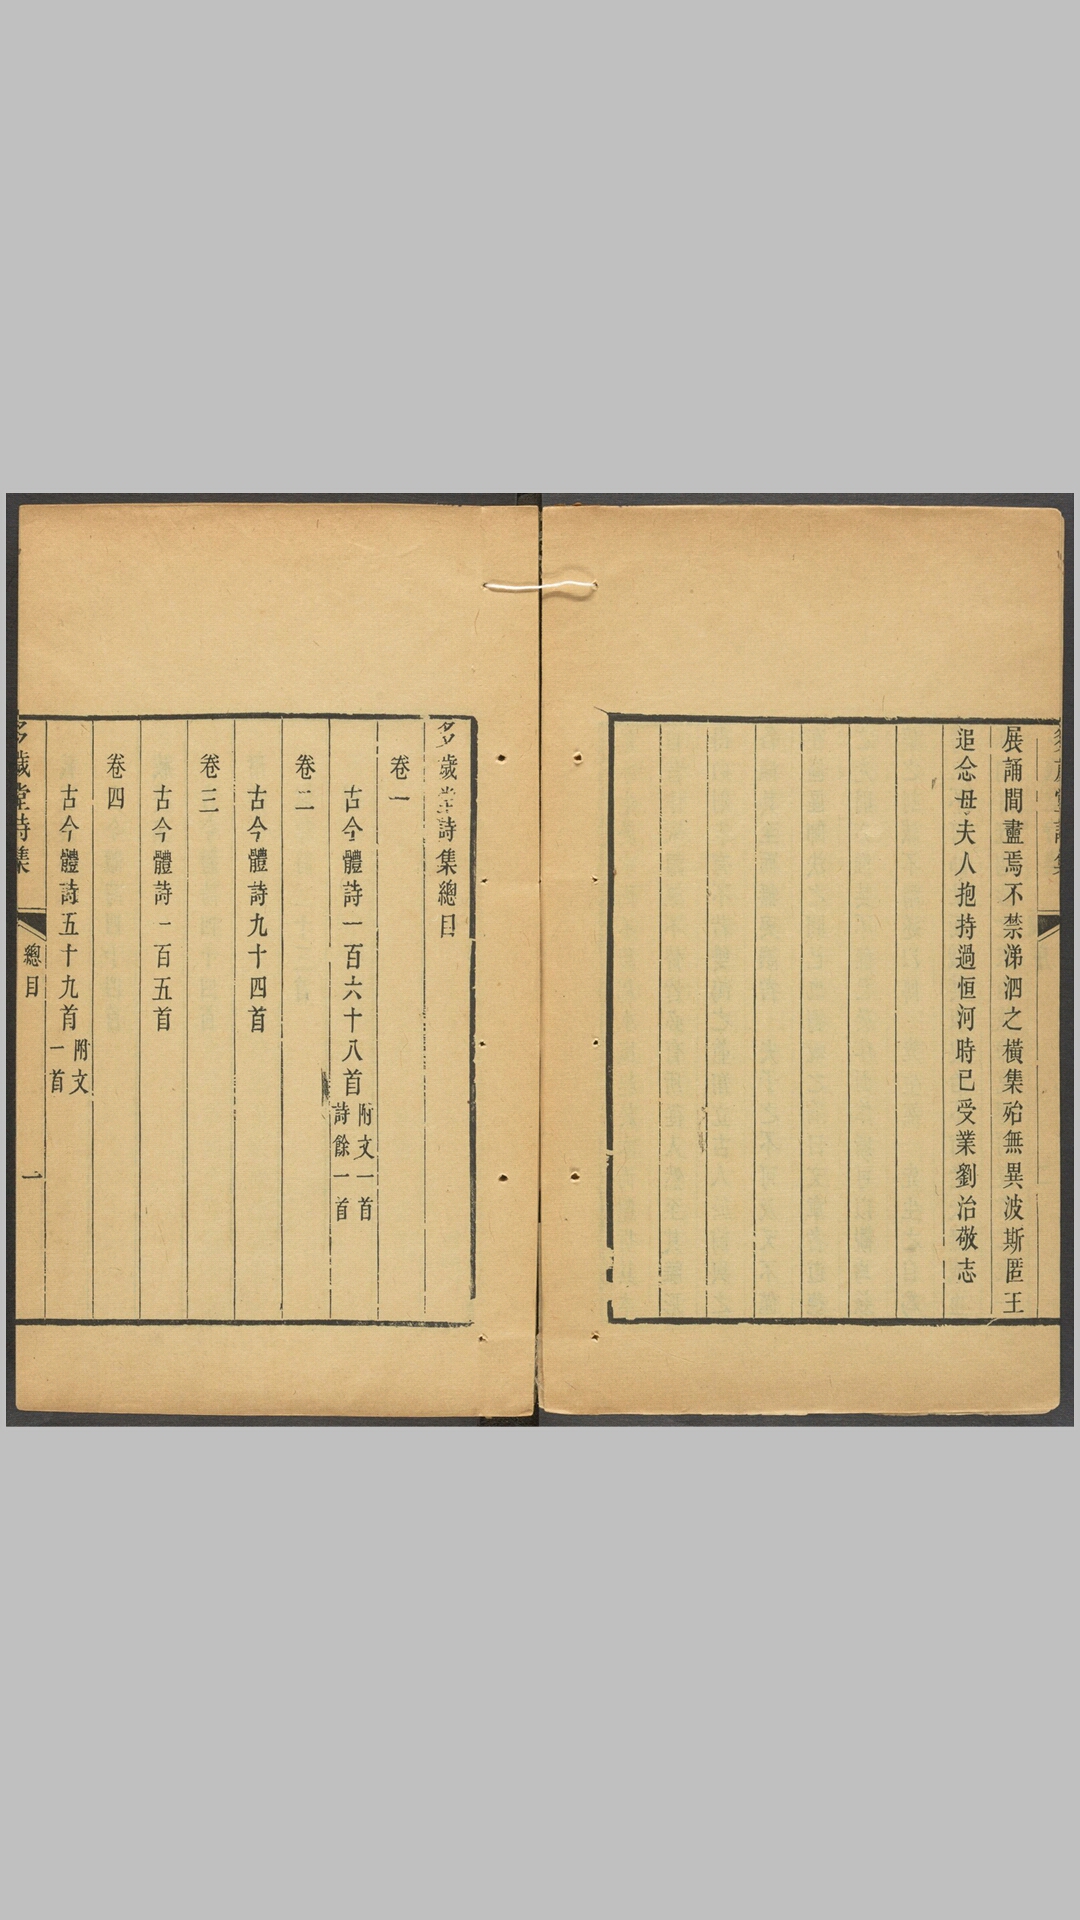 展誦間盡焉不禁涕泗之橫集殆無異波斯匿王
追念母夫人抱持過恒河時已受業劉治敬志
多歲堂詩集總目
卷一
古今體詩一百六十八首 附文一首
詩餘一首
卷二
古今體詩九十四首
卷三
古今體詩一百五首
卷四
古今體詩五十九首 附文
一首
多歲堂詩集 總目 一